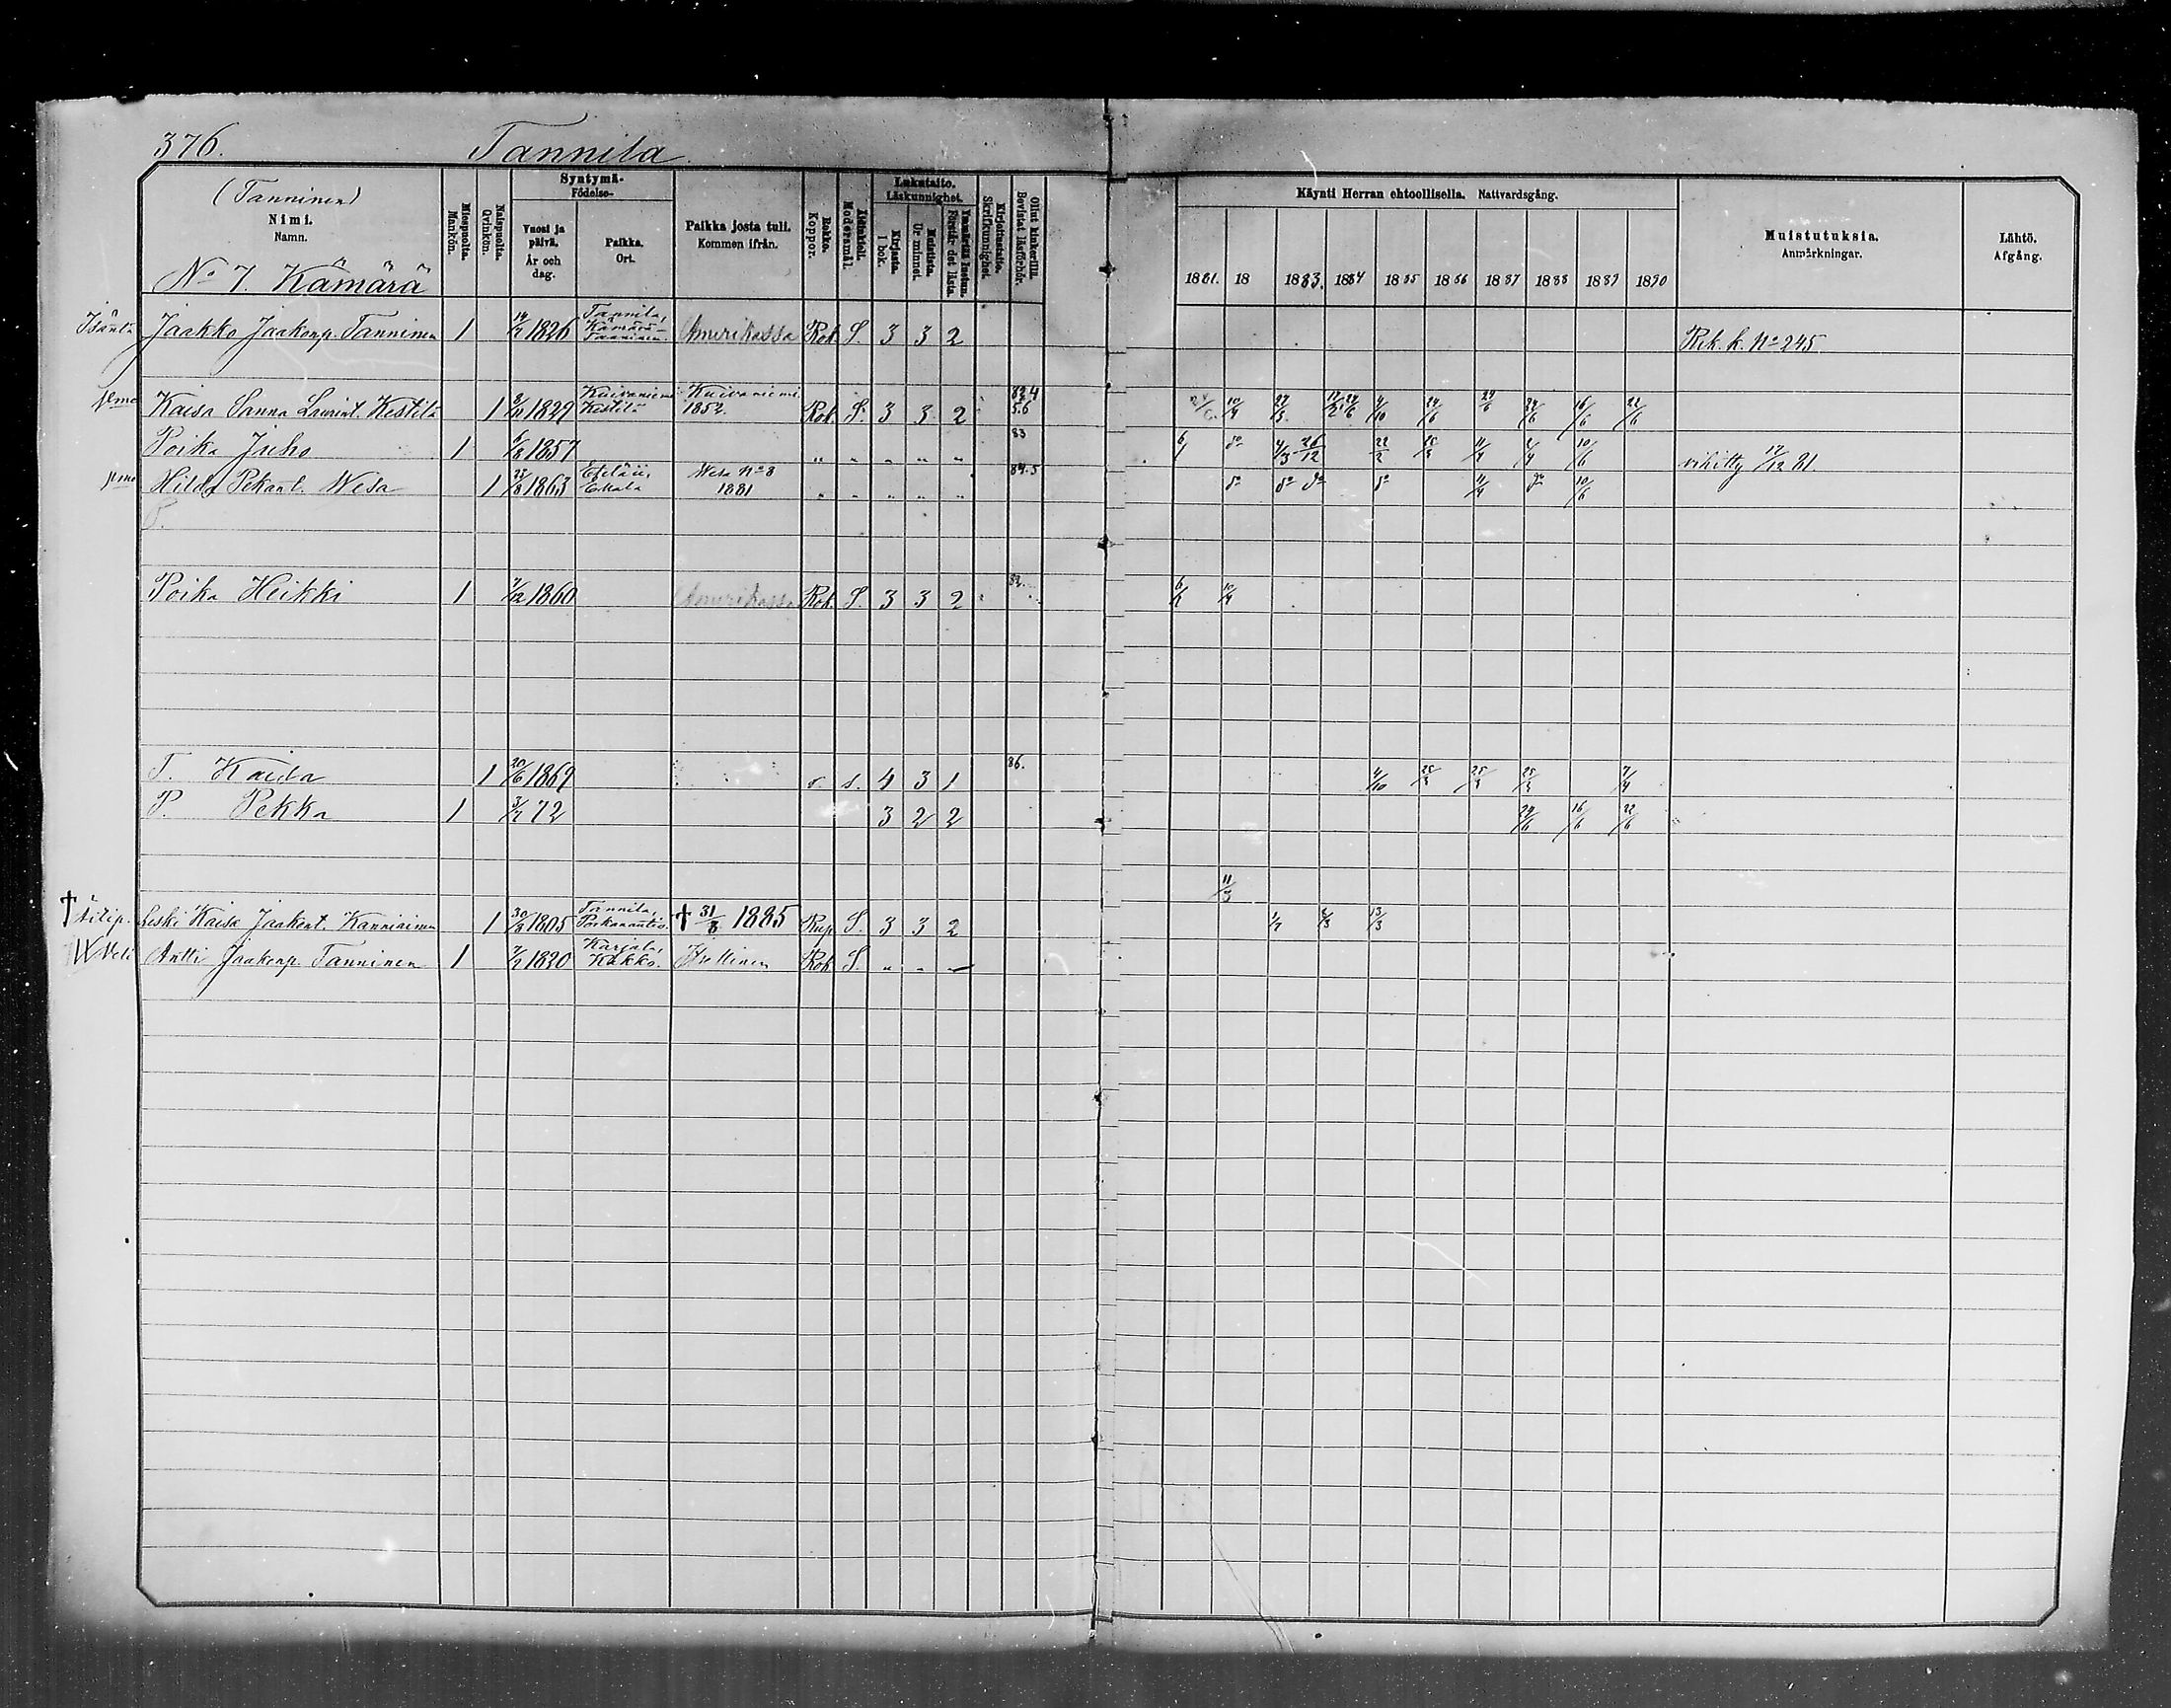 376. Tannila
(Tanninen)
Nimi.
Namn.
No 7. Kämärä
Miespuolta. Mankön.
Naispuolta. Qvinkön.
Syntymä-
Födelse-
Vuosi ja päivä. År och dag.
Paikka. Ort.
Paikka josta tuli.
Kommen ifrån.
Rokko. Koppor.
Äidinkieli. Modersmål.
Lukutaito.
Läskunnighet.
Kirjasta. I bok.
Muistista. Ur minnet.
Ymmärtää luetun. Förstår det lästa.
Kirjoitustaito. Skrifkunnighet.
Ollut kinkerillä. Bevistat läsförhör.
Käynti Herran ehtoollisella. Nattvardsgång.
1881. 18 1883. 1884 1885 1886 1887 1888 1889 1890
Muistutuksia.
Anmärkningar.
Lähtö.
Afgång.
Isäntä Jaakko Jaakonp. Tanninen 1 14/7 1826 Tannila, Kämärä- Tanninen. Amerikassa Rok. S. 3 3 2 Rik. k. No 245
Kaisa Sanna Laurint. Kestilä 1 1829 Kuivaniemi Kestilä Kuivaniemi. 1852. Rok. S. 3 3 2 83.4 5.6 10/4 4/10 24/6 24/6 24/6 16/6 22/6
Poika Juho 1 6/8 1857 „ „ „ „ „ 83 6/7 do 4/3 26/12 22/2 11/4 2/4 10/6 vihitty 17/12 81
Hilda Pekant. Wesa 1 25/8 1863 Eteläii, Wesa No 8 1881 „ „ „ „ „ 84.5 do do do do 11/4 do 10/6
P.
Poika Heikki 1 7/12 1860 Amerikassa Rok. S. 3 3 2 82. 6/7 10/4
T. Kaisa 1 20/6 1869 s. 4 3 1 86. 4/10 25/3 25/3 25/3 7/4
P. Pekka 1 3/7 72 3 2 2 24/6 16/6 22/6
11/3
† äitip. Leski Kaisa Jaakont. Kanniainen 1 30/8 1805 Tannila, † 31/8 1885 Rup. S. 3 3 2 1/7 2/3 13/3
Veli Antti Jaakonp. Tanninen 1 7/2 1820 Karjala, Kakko. Itsellinen Rok S. „ „ „